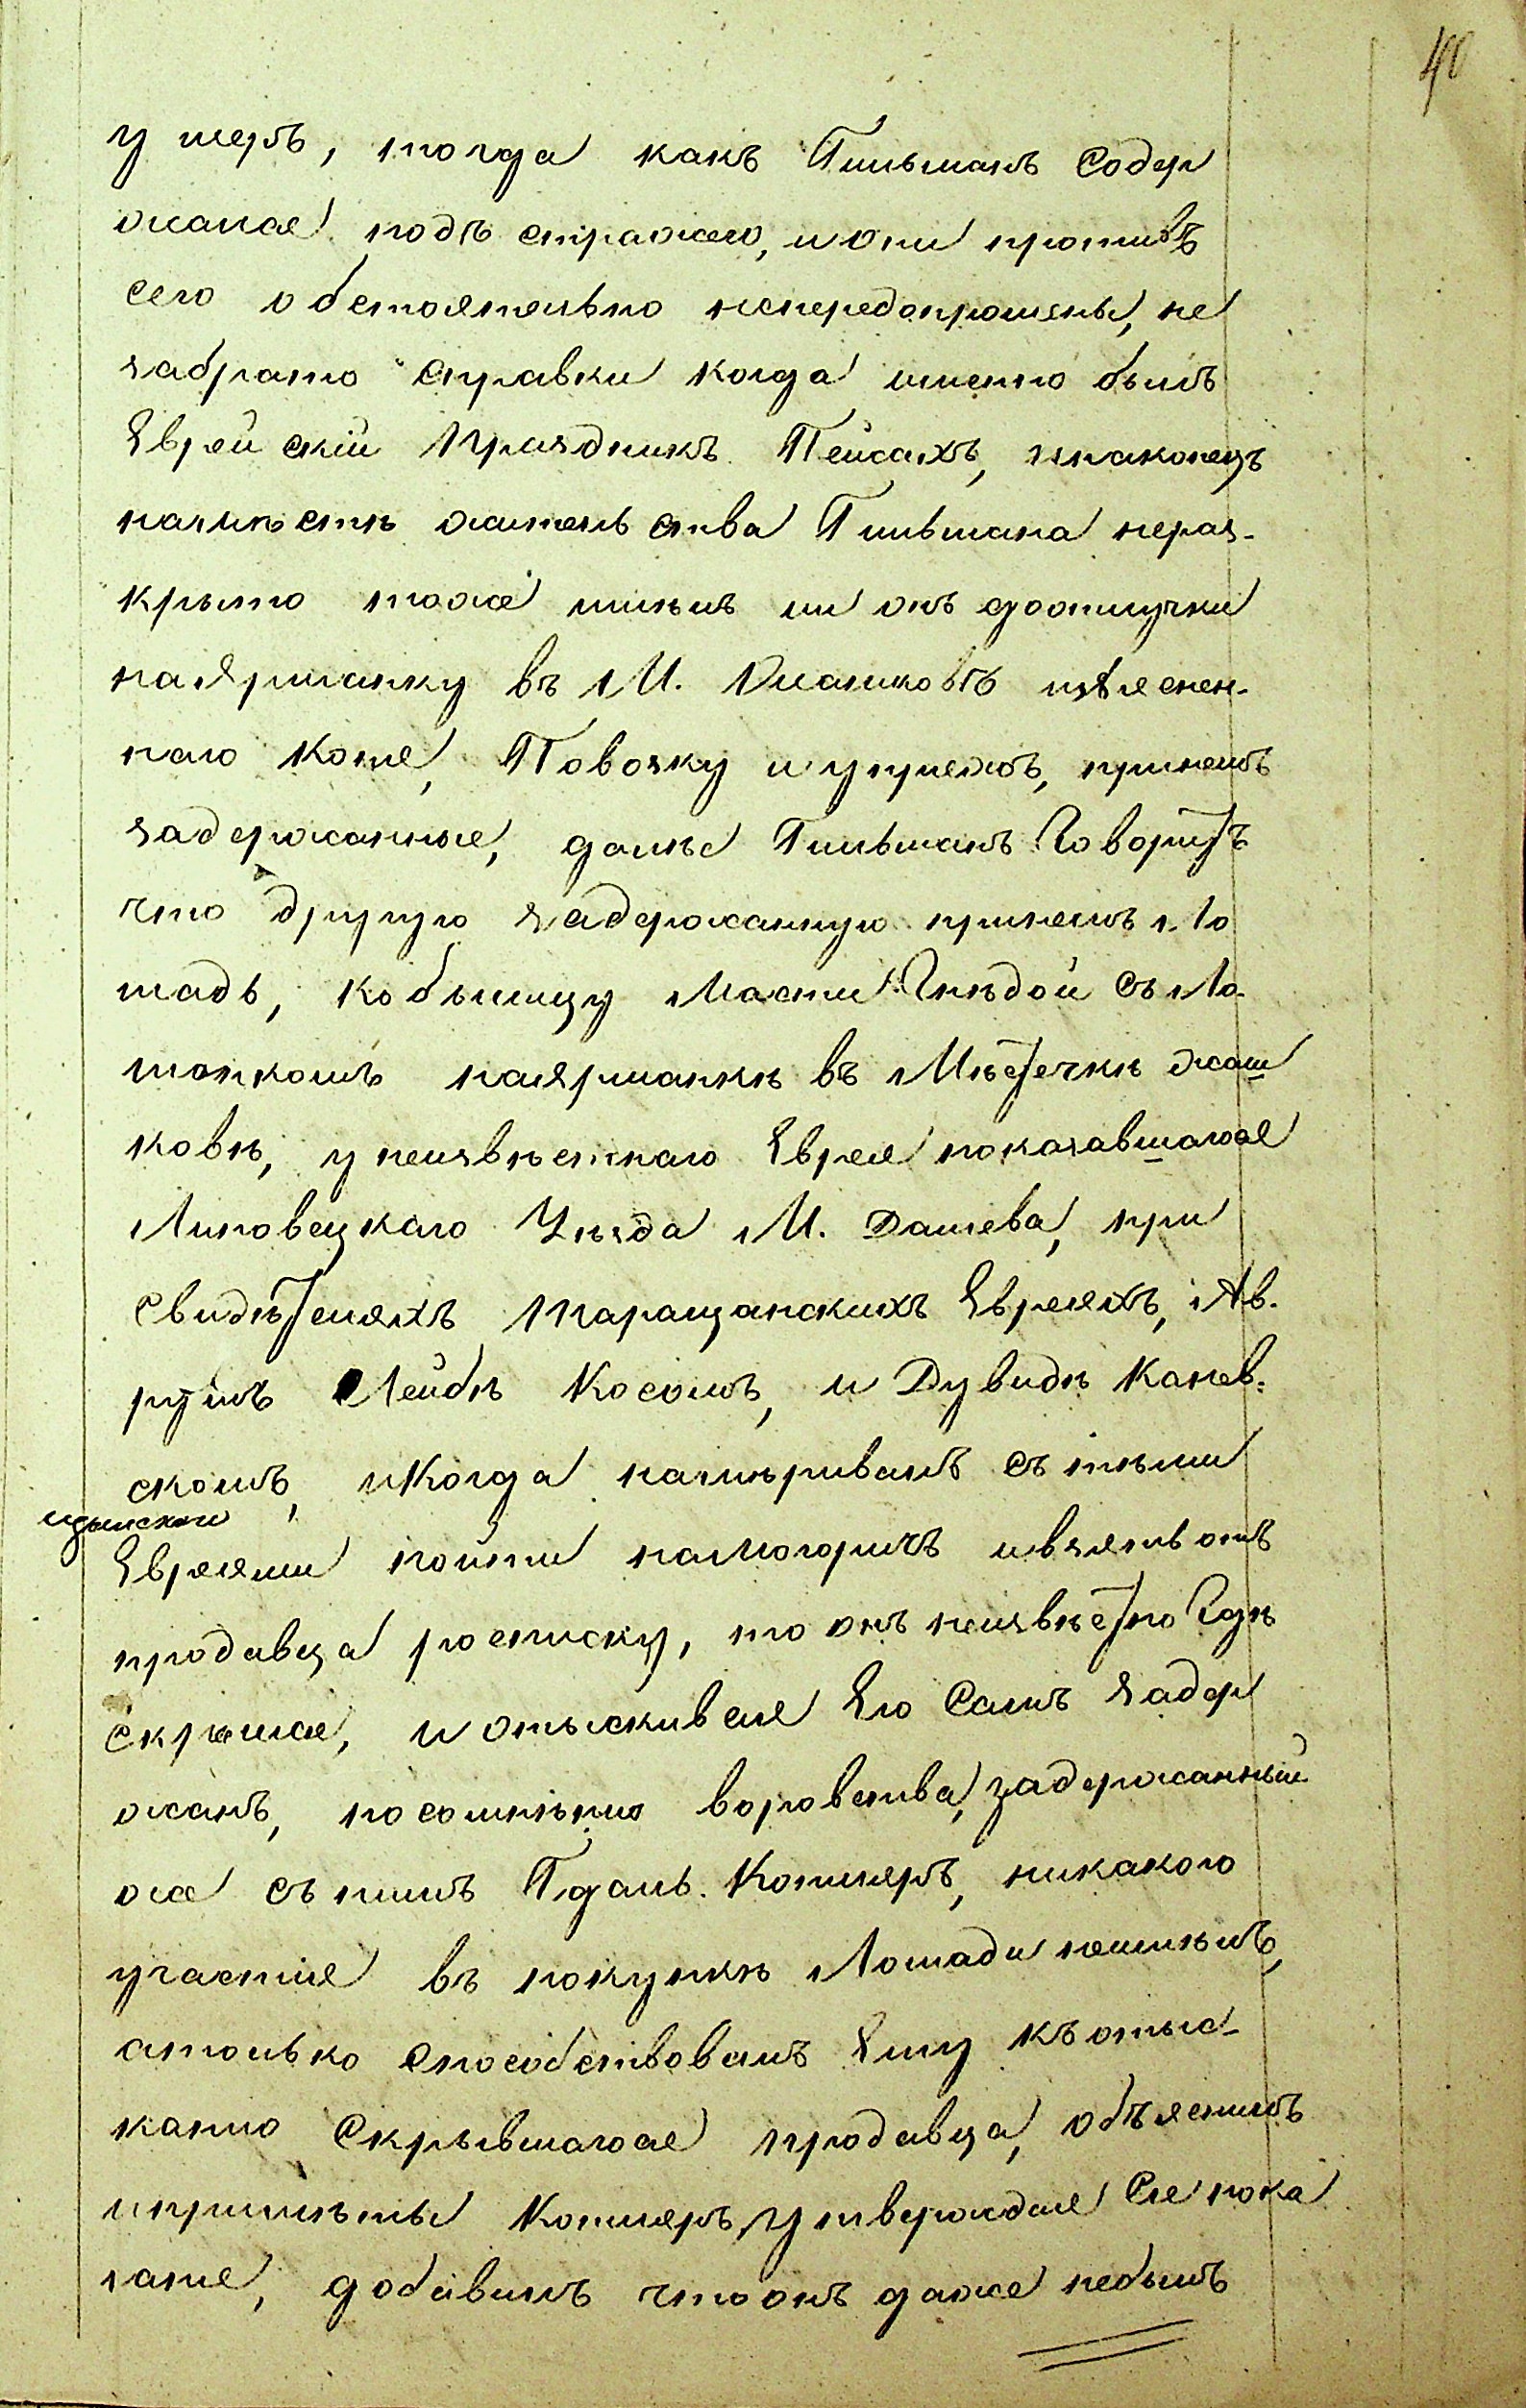 40
умеръ, тогда какъ Гильманъ содер
жался подъ стражею, и они противъ
сего обстоятельно непередопрошены, не
забрато справки когда именно былъ
Еврейскій Праздникъ Пейсахъ, инаконецъ
намѣстѣ жительства Гильмана нераз-
крыто тоже имѣлъ ли онъ доотлучки
наярманку въ М. Жашковъ изъяснен-
наго Коня, Повозку и упряжъ, принемъ
задержанные, далѣе Гильманъ Говоритъ
что другую задержанную принемъ Ло
шадь, кобылицу Масти Гнѣдой съ Ло-
шонкомъ наярманкѣ въ Мѣстечкѣ Жаш
ковѣ, у неизвѣстнаго Еврея показавшагося
Липовецкаго Уѣзда М. Дашева, при
свидѣтеляхъ Таращанскихъ Евреяхъ, Ав-
румъ Лейбѣ Косомъ, и Дувидѣ Канев-
скомъ, иКогда намѣривалъ съ тѣми
Евреями пойти намогоричъ ивзять отъ
продавца росписку, то онъ неизвѣстно Гдѣ
скрылся, и отыскивая Его Самъ Задер
жанъ, посомнѣнію воровства, задержанный
же съ нимъ Гдаль Котляръ, никакого
участія въ покупкѣ Лошади неимѣлъ,
атолько способствовалъ Ему къ отыс-
канію Скрывшагося продавца, объяснилъ
ипримѣты Котляръ, утверждая Сіе пока
заніе, добавилъ что онъ даже небылъ